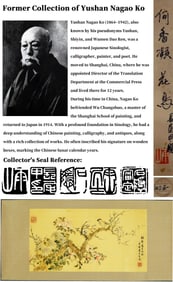 Former Collection of Yushan Nagao Ko
Yushan Nagao Ko (1864-1942), also
known by his pseudonyms Yushan,
Shiyin, and Wumen Duo Ren, was a
renowned Japanese Sinologist,
calligrapher, painter, and poet. He
moved to Shanghai, China, where he was
appointed Director of the Translation
Department at the Commercial Press
and lived there for 12 years.
During his time in China, Nagao Ko
befriended Wu Changshuo, a master of
the Shanghai School of painting, and
returned to Japan in 1914. With a profound foundation in Sinology, he had a
deep understanding of Chinese painting, calligraphy, and antiques, along
with a rich collection of works. He often inscribed his signature on wooden
boxes, marking the Chinese lunar calendar years.
Collector's Seal Reference:
何香凝花鳥